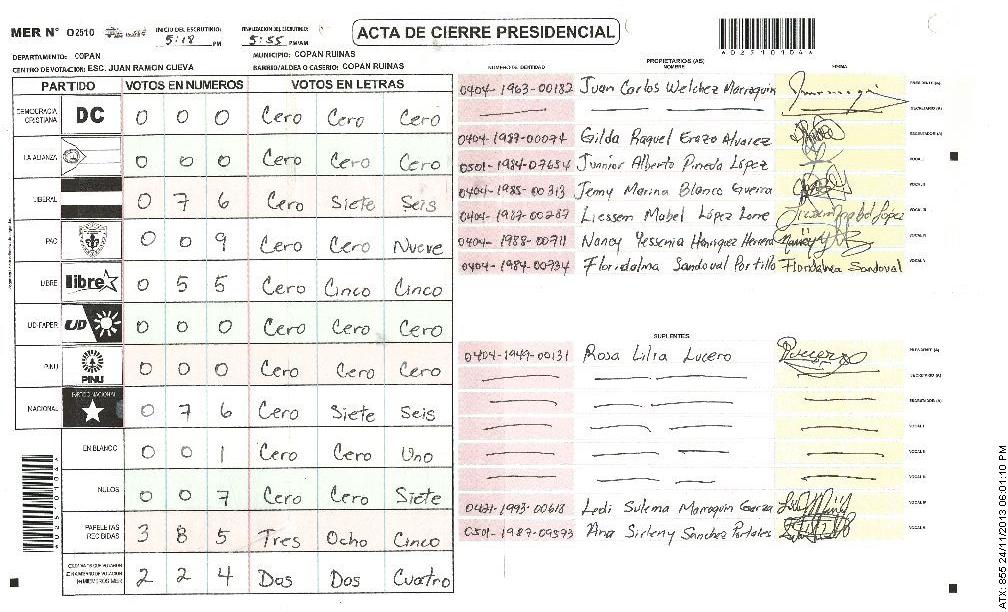 MER N° 02510 INICIO DEL ESCRUTINIO: 5:18 PM FINALIZACION DEL ESCRUTINIO: 5:55 PM/AM ACTA DE CIERRE PRESIDENCIAL
DEPARTAMENTO: COPAN MUNICIPIO: COPAN RUINAS
CENTRO DE VOTACION: ESC. JUAN RAMON CUEVA BARRIO/ALDEA O CASERIO: COPAN RUINAS
PARTIDO VOTOS EN NUMEROS VOTOS EN LETRAS
DEMOCRACIA CRISTIANA DC 0 0 0 Cero Cero Cero
LA ALIANZA 0 0 0 Cero Cero Cero
LIBERAL 0 7 6 Cero Siete Seis
PAC 0 0 9 Cero Cero Nueve
LIBRE libre 0 5 5 Cero Cinco Cinco
UD-FAPER UD 0 0 0 Cero Cero Cero
PINU PINU 0 0 0 Cero Cero Cero
NACIONAL PARTIDO NACIONAL 0 7 6 Cero Siete Seis
EN BLANCO 0 0 1 Cero Cero Uno
NULOS 0 0 7 Cero Cero Siete
PAPELETAS RECIBIDAS 3 8 5 Tres Ocho Cinco
2 2 4 Dos Dos Cuatro
NUMERO DE IDENTIDAD PROPIETARIOS (AS) NOMBRE FIRMA
0404-1963-00182 Juan Carlos Welchez Marroquin PRESIDENTE (A)
SECRETARIO (A)
0404-1987-00074 Gilda Raquel Erazo Alvarez ESCRUTADOR (A)
0501-1984-07654 Junnior Alberto Pineda López VOCAL I
0404-1985-00313 Jenny Marina Blanco Guerra VOCAL II
0404-1987-00287 Liessem Mabel López Lone VOCAL III
0404-1988-00711 Nancy Yessenia Henriquez Herrera VOCAL IV
0404-1984-00734 Floridalma Sandoval Portillo Floridalma Sandoval VOCAL V
SUPLENTES
0404-1949-00131 Rosa Lilia Lucero PRESIDENTE (A)
SECRETARIO (A)
ESCRUTADOR (A)
VOCAL I
VOCAL II
VOCAL III
0421-1993-00618 Ledi Sulema Marroquin Garza VOCAL IV
0501-1987-09573 Ana Sirleny Sanchez Portales VOCAL V
ATX: 855 24/11/2013 06:01:10 PM